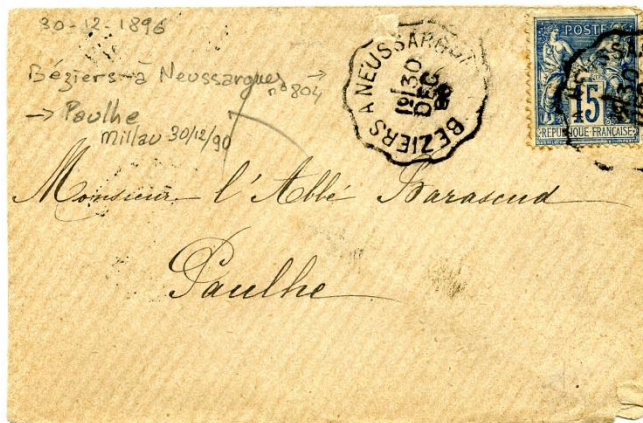 30-12-1896
Béziers-à Neussargues →
n° 804
→ Paulhe
Millau 30/12/90
BEZIERS A NEUSSARGUES
1° / 30
DEC
POSTES
15
REPUBLIQUE FRANÇAISE
30
Monsieur l'Abbé Barascud
Paulhe